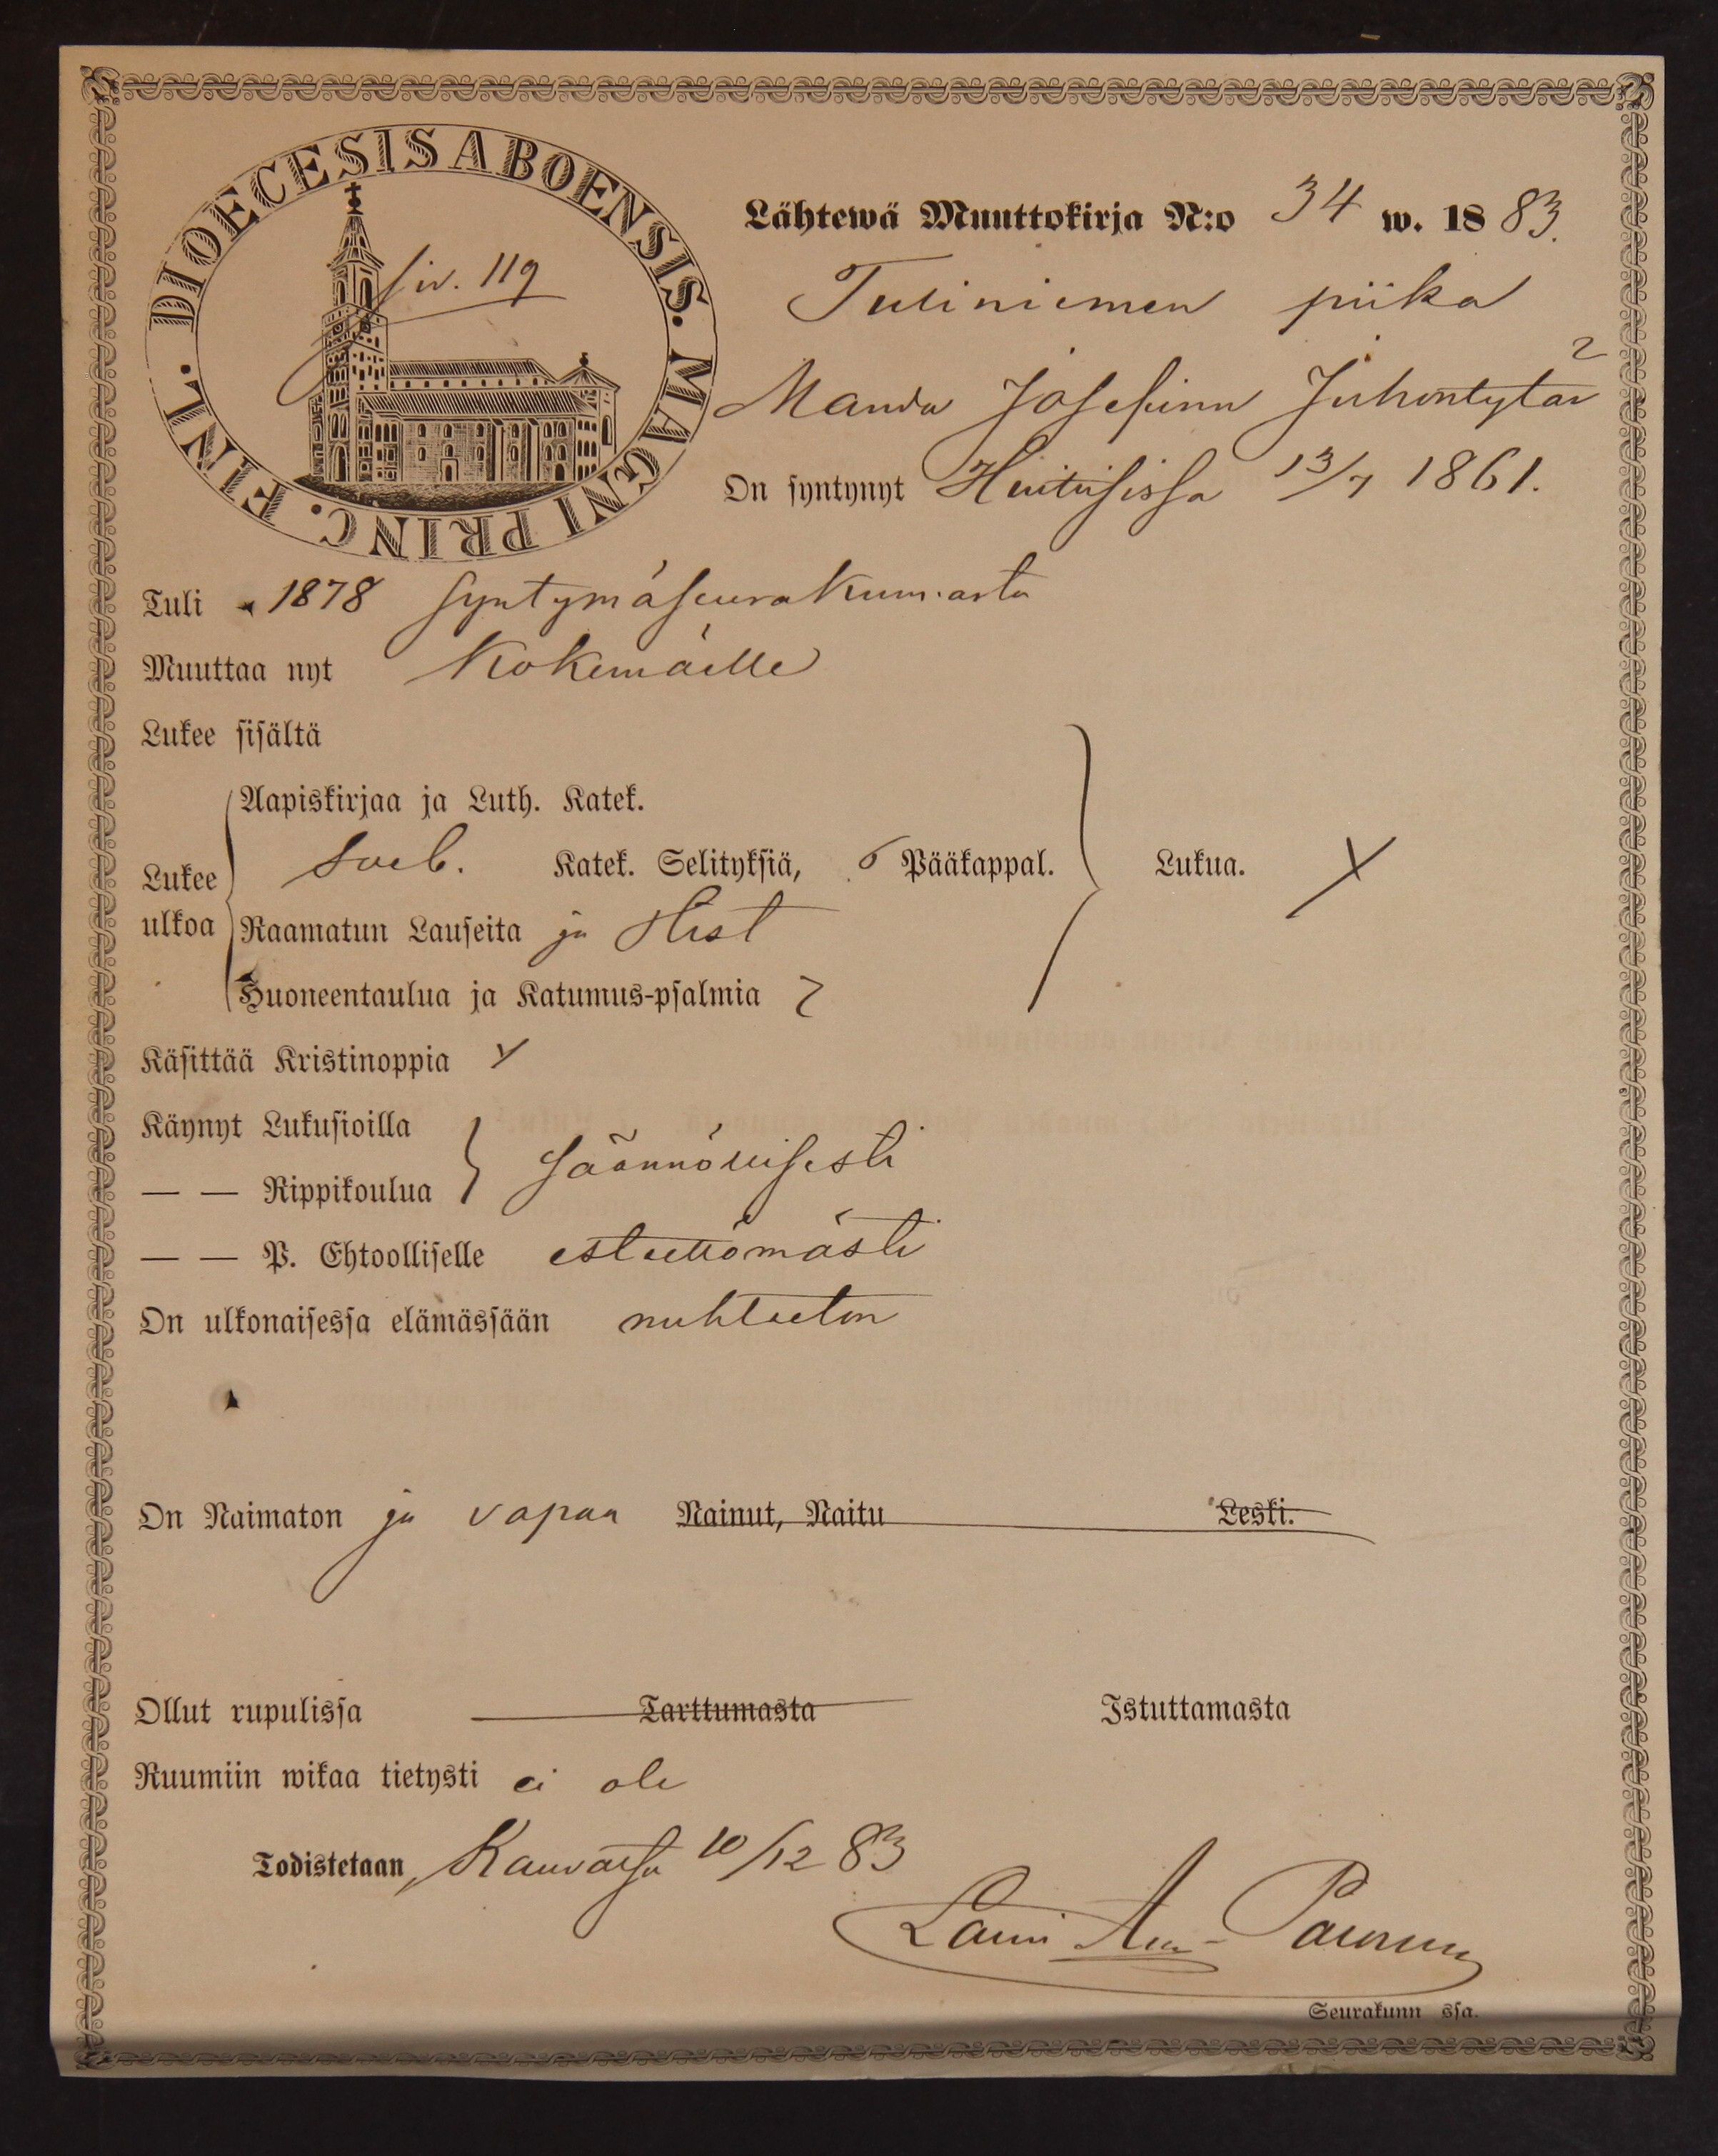 DIOECESIS ABOENSIS. MAGNI PRINC. FINL.
siv. 119
Lähtewä Muuttokirja N:o 34 w. 1883.
Tuliniemen piika
Manda Josefiina Juhontytär 2
On syntynyt Huitisissa 13/7 1861.
Tuli 1878 syntymäseurakunnasta
Muuttaa nyt Kokemäelle
Lukee sisältä
Aapiskirjaa ja Luth. Katek.
Lukee ulkoa Sveb. Katek. Selityksiä, 6 Pääkappal. Lukua.
Raamatun Lauseita ja Hist
Huoneentaulua ja Katumus-psalmia 7
Käsittää Kristinoppia
Käynyt Lukusioilla
— — Rippikoulua säännöllisesti
— — P. Ehtoolliselle esteettömästi
On ulkonaisessa elämässään nuhteeton
On Naimaton ja vapaa Nainut, Naitu Leski.
Ollut rupulissa Tarttumasta Istuttamasta
Ruumiin wikaa tietysti ei ole
Todistetaan, Kauvatsa 10/12 83
Lauri
Seurakunn ssa.